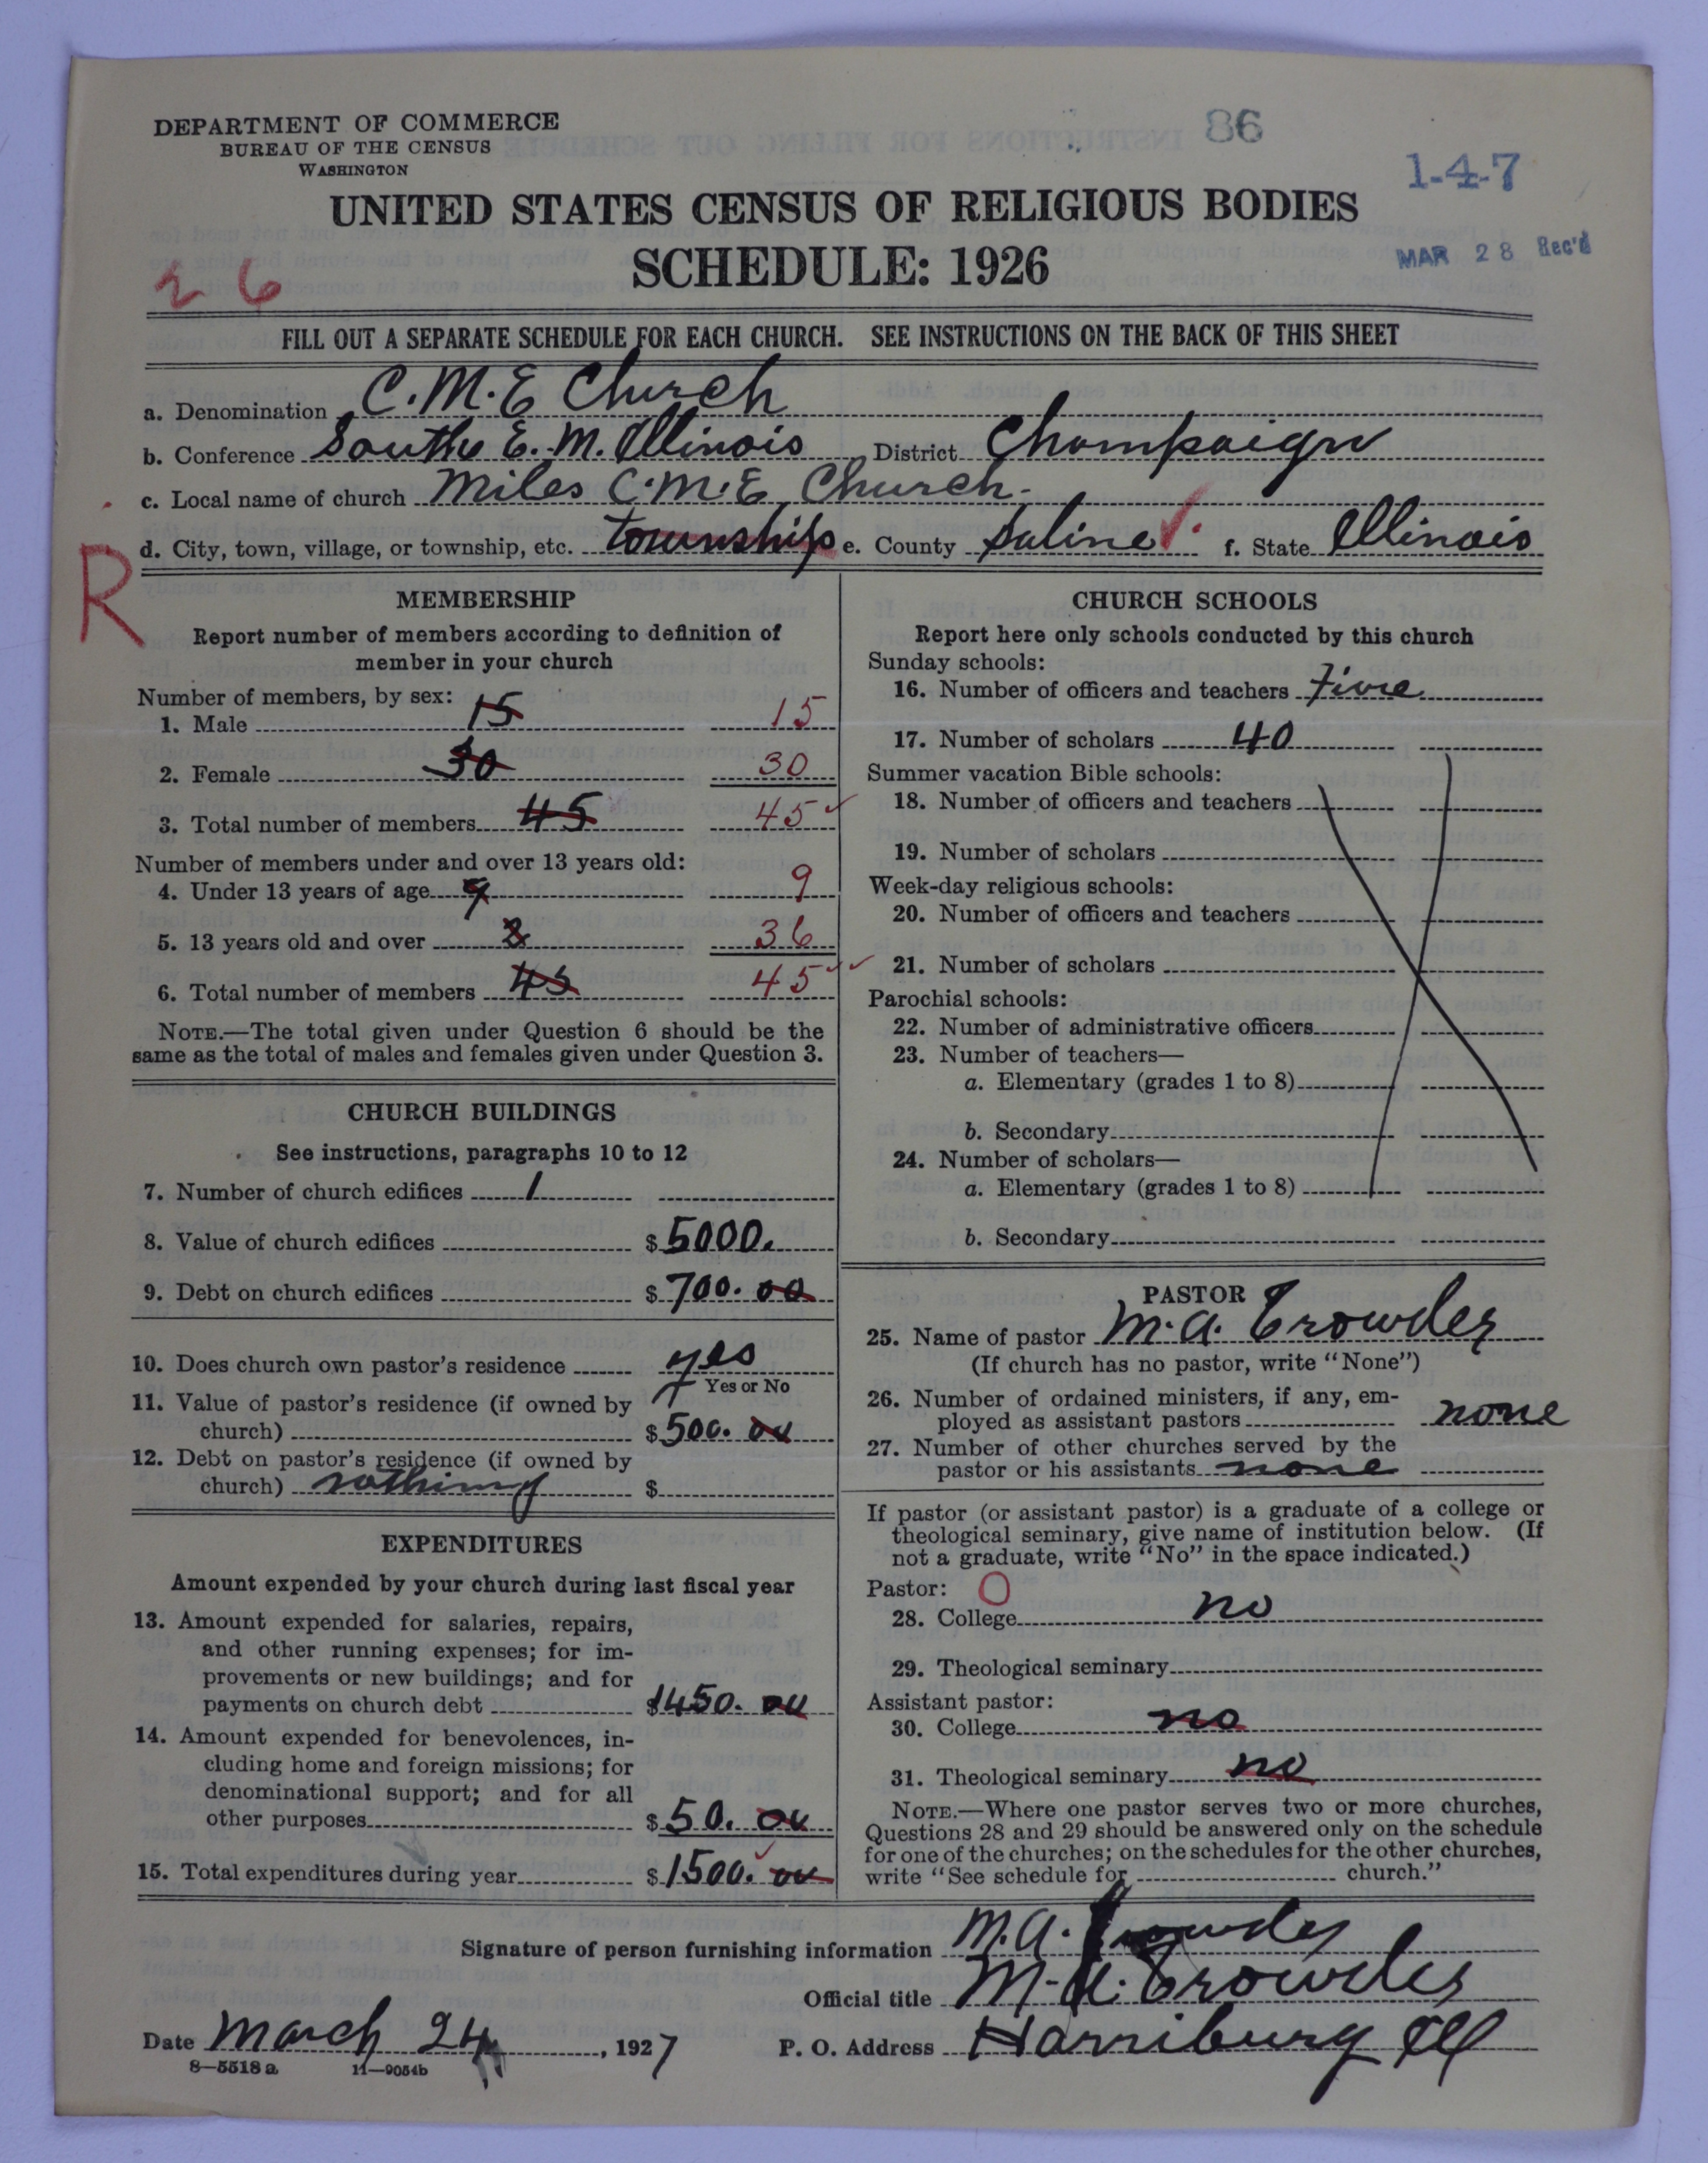 DEPARTMENT OF COMMERCE
BUREAU OF THE CENSUS
WASHINGTON
86
1-4-7
UNITED STATES CENSUS OF RELIGIOUS BODIES
SCHEDULE: 1926
MAR 28 Rec'd
26
FILL OUT A SEPARATE SCHEDULE FOR EACH CHURCH. SEE INSTRUCTIONS ON THE BACK OF THIS SHEET
a. Denomination C.M.E Church
b. Conference South E. M. Illinois District Champaign
c. Local name of church Miles C.M.E Church
d. City, town, village, or township, etc. township e. County Saline f. State Illinois
R
MEMBERSHIP
Report number of members according to definition of
member in your church
Number of members, by sex:
1. Male 15 15
2. Female 30 30
3. Total number of members 45 45
Number of members under and over 13 years old:
4. Under 13 years of age 9 9
5. 13 years old and over 36
6. Total number of members 45 45
NOTE.—The total given under Question 6 should be the
same as the total of males and females given under Question 3.
CHURCH BUILDINGS
See instructions, paragraphs 10 to 12
7. Number of church edifices 1
8. Value of church edifices $ 5000.
9. Debt on church edifices $ 700. 00
10. Does church own pastor's residence yes
Yes or No
11. Value of pastor's residence (if owned by
church) $ 500. 00
12. Debt on pastor's residence (if owned by
church) nothing $
EXPENDITURES
Amount expended by your church during last fiscal year
13. Amount expended for salaries, repairs,
and other running expenses; for im-
provements or new buildings; and for
payments on church debt $ 1450. 00
14. Amount expended for benevolences, in-
cluding home and foreign missions; for
denominational support; and for all
other purposes $ 50. 00
15. Total expenditures during year $ 1500. 00
CHURCH SCHOOLS
Report here only schools conducted by this church
Sunday schools:
16. Number of officers and teachers five
17. Number of scholars 40
Summer vacation Bible schools:
18. Number of officers and teachers
19. Number of scholars
Week-day religious schools:
20. Number of officers and teachers
21. Number of scholars
Parochial schools:
22. Number of administrative officers
23. Number of teachers—
a. Elementary (grades 1 to 8)
b. Secondary
24. Number of scholars—
a. Elementary (grades 1 to 8)
b. Secondary
PASTOR
25. Name of pastor M. A. Crowder
(If church has no pastor, write "None")
26. Number of ordained ministers, if any, em-
ployed as assistant pastors none
27. Number of other churches served by the
pastor or his assistants none
If pastor (or assistant pastor) is a graduate of a college or
theological seminary, give name of institution below. (If
not a graduate, write "No" in the space indicated.)
Pastor: O
28. College no
29. Theological seminary
Assistant pastor:
30. College no
31. Theological seminary no
NOTE.—Where one pastor serves two or more churches,
Questions 28 and 29 should be answered only on the schedule
for one of the churches; on the schedules for the other churches,
write "See schedule for church."
Signature of person furnishing information M. A. Crowder
Official title M. A. Crowder
Date March 24, 1927 P. O. Address Harriburg Ill
8—5518 a 11—9054b